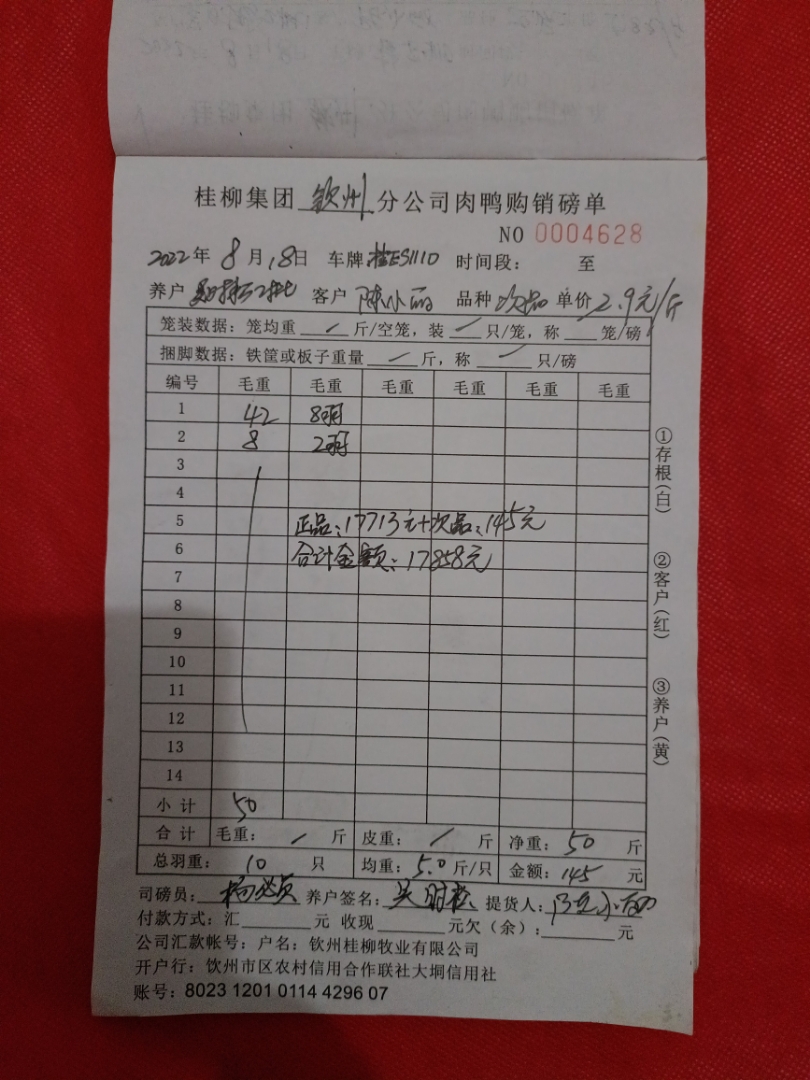 桂柳集团 钦州 分公司肉鸭购销磅单
NO 0004628
2022年 8月18日 车牌 桂ES1110 时间段： 至
养户 客户 陈小丽 品种 次品 单价 2.9元/斤
笼装数据：笼均重 / 斤/空笼，装 / 只/笼，称 笼/磅
捆脚数据：铁筐或板子重量 / 斤，称 / 只/磅
编号 毛重 毛重 毛重 毛重 毛重 毛重
1 42 8羽
2 8 2羽
3
4
5 正品：17713元+次品：145元
6 合计金额：17858元
7
8
9
10
11
12
13
14
小计 50
合计 毛重： / 斤 皮重： / 斤 净重： 50 斤
总羽重： 10 只 均重： 5.0 斤/只 金额： 145 元
①存根(白)
②客户(红)
③养户(黄)
司磅员： 养户签名： 提货人： 陈小丽
付款方式：汇 元 收现 元欠（余）： 元
公司汇款帐号：户名：钦州桂柳牧业有限公司
开户行：钦州市区农村信用合作联社大垌信用社
账号：8023 1201 0114 4296 07